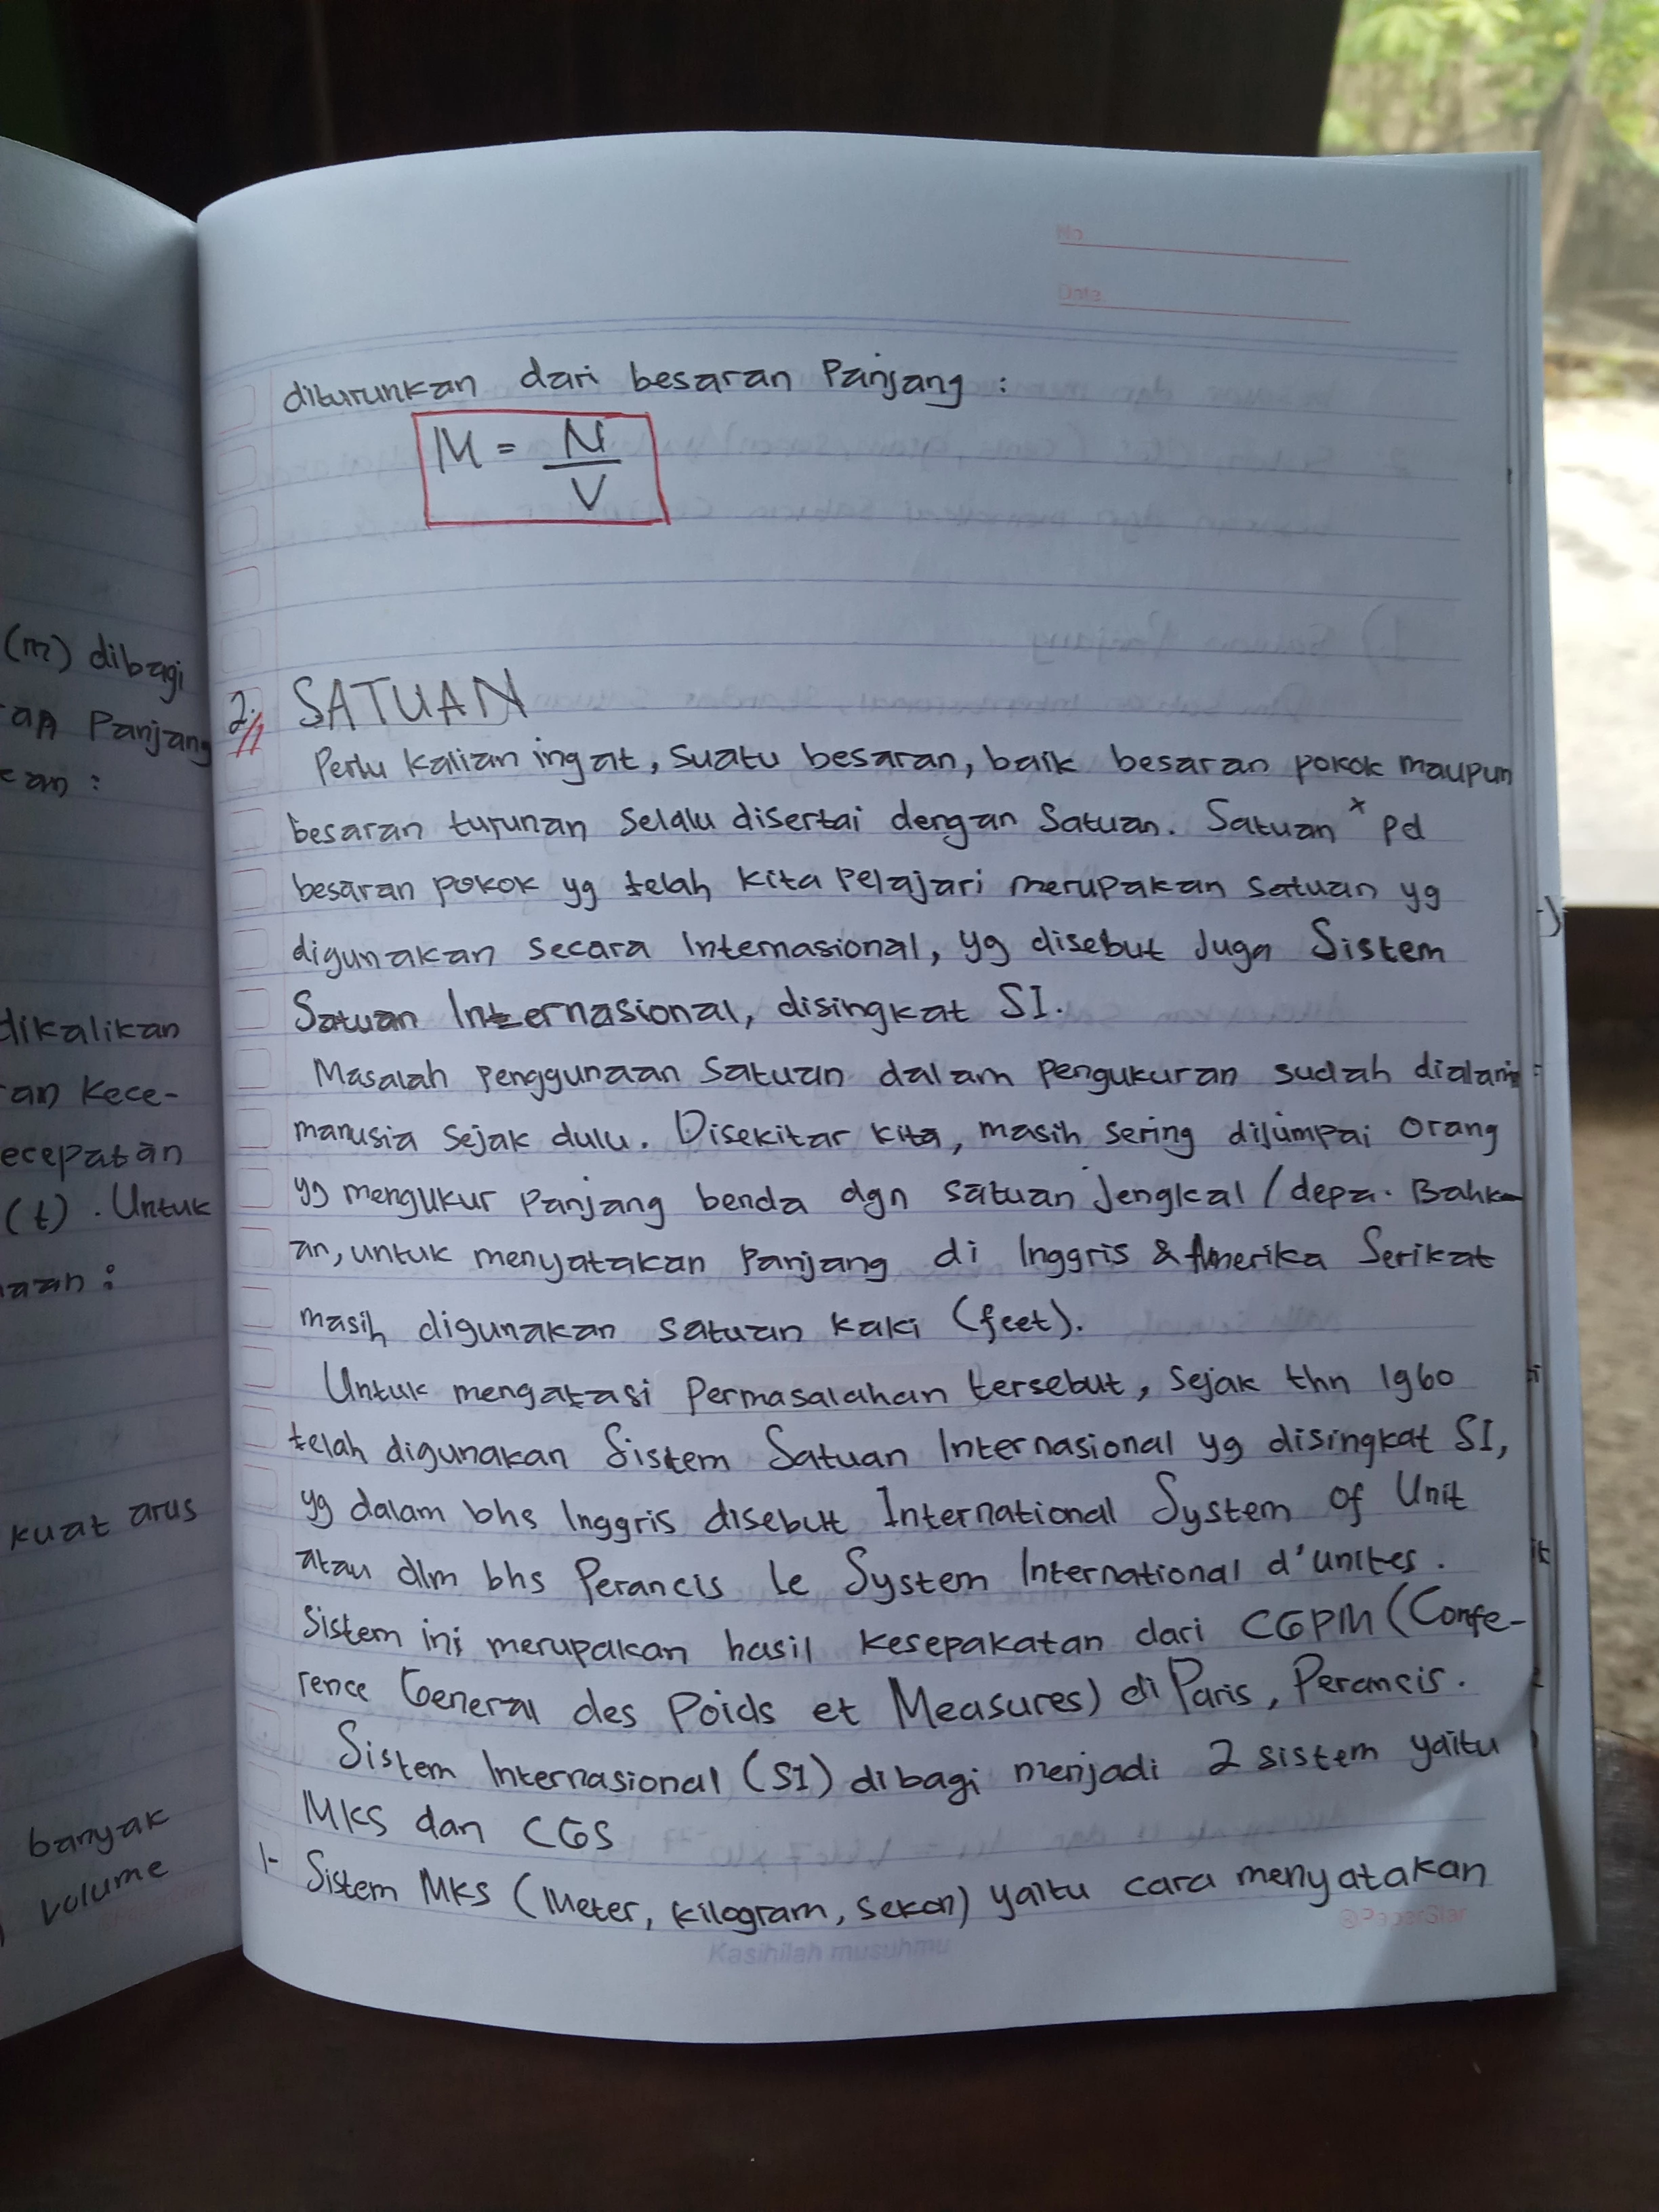 (m) dibagi
Panjang
:
dikalikan
an Kece-
ecepatan
(t). Untuk
:
kuat arus
banyak
volume
No
Date.
diturunkan dari besaran Panjang :
M = N
V
2. SATUAN
Perlu kalian ingat, suatu besaran, baik besaran pokok maupun
besaran turunan selalu disertai dengan Satuan. Satuan x pd
besaran pokok yg telah kita pelajari merupakan satuan yg
digunakan secara Internasional, yg disebut Juga Sistem
Satuan Internasional, disingkat SI.
Masalah penggunaan satuan dalam pengukuran sudah dialami
manusia sejak dulu. Disekitar kita, masih sering dijumpai orang
yg mengukur panjang benda dgn satuan jengkal / depa. Bahk-
an, untuk menyatakan panjang di Inggris & Amerika Serikat
masih digunakan satuan kaki (feet).
Untuk mengatasi permasalahan tersebut, sejak thn 1960
telah digunakan Sistem Satuan Internasional yg disingkat SI,
yg dalam bhs Inggris disebut International System of Unit
atau dlm bhs Perancis le System International d'unites.
Sistem ini merupakan hasil kesepakatan dari CGPM (Confe-
rence General des Poids et Measures) di Paris, Perancis.
Sistem Internasional (SI) dibagi menjadi 2 sistem yaitu
MKS dan CGS
1- Sistem MKS (Meter, kilogram, sekon) yaitu cara menyatakan
Kasihilah musuhmu
@PaperStar